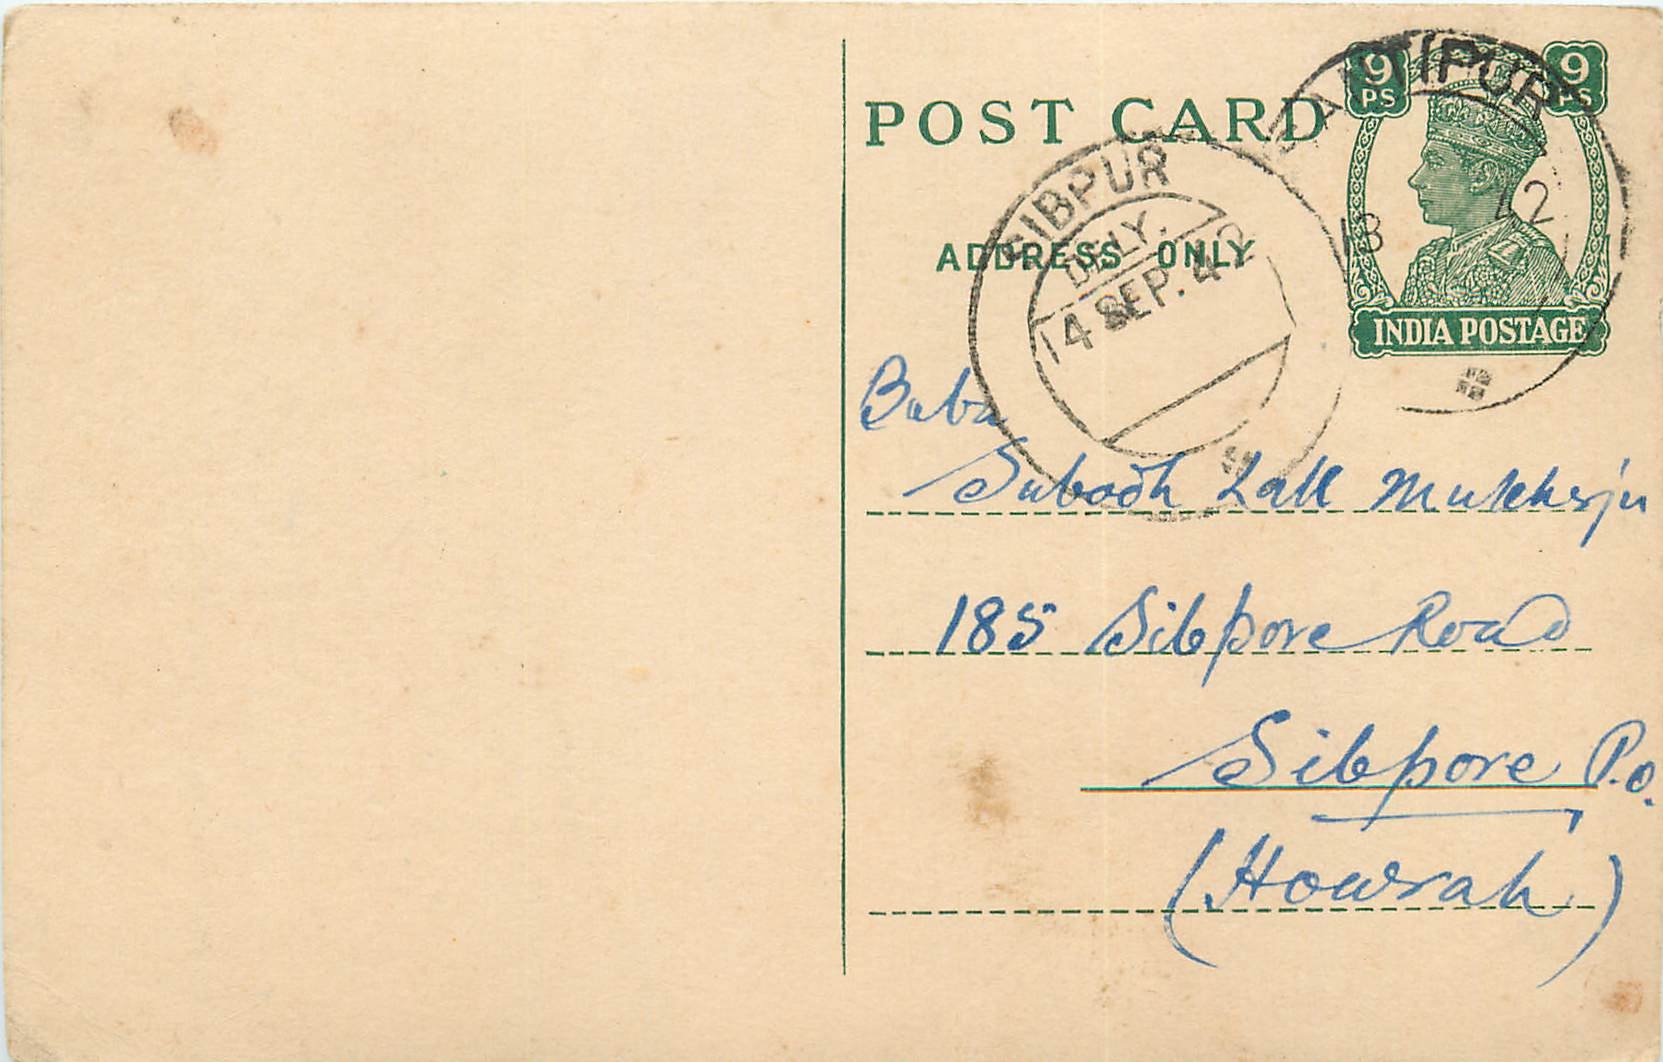 POST CARD
ADDRESS ONLY
9 PS
9 PS
INDIA POSTAGE
SANTIPUR
13
42
SIBPUR
DELY.
14 SEP. 42
Babu
Subodh Lall Mukherju
185 Sibpore Road
Sibpore P.O.
(Howrah)